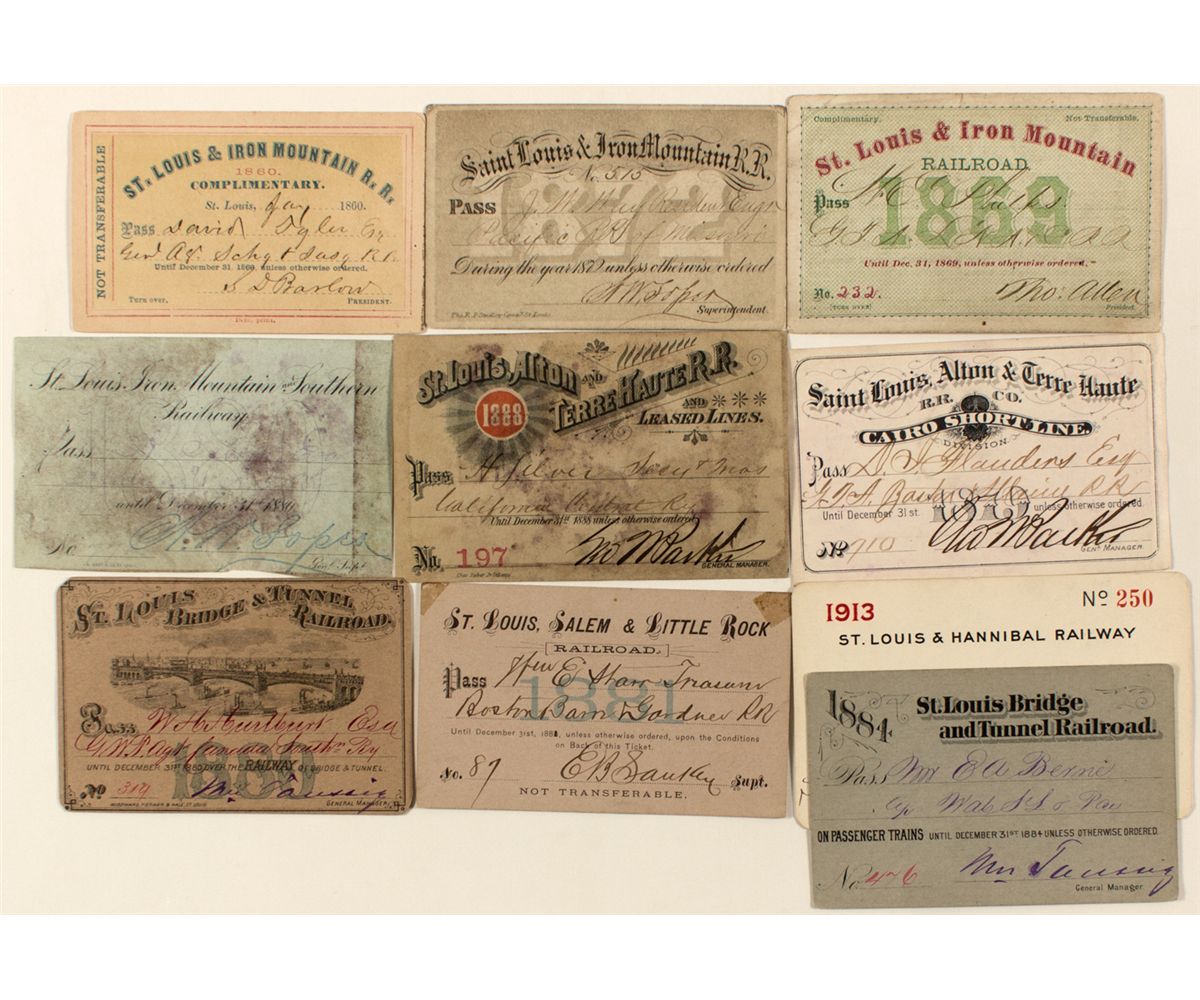 NOT TRANSFERABLE
ST. LOUIS & IRON MOUNTAIN R. R.
1860.
COMPLIMENTARY.
St. Louis, Jay 1860.
Pass David Tyler Eq
Genl Agt Schyl & Susq R.R.
Until December 31. 1860. unless otherwise ordered.
S D Barlow
Turn over. PRESIDENT.
Saint Louis & Iron Mountain R.R.
No. 515
PASS J. W. Resident Engr
Pacific R.R. of Missouri
During the year 1872 unless otherwise ordered
A W Soper
Superintendent.
Complimentary. Not Transferable.
St. Louis & Iron Mountain
RAILROAD.
1869
Pass
G.T.A.
Until Dec. 31, 1869, unless otherwise ordered.
No. 232. Tho. Allen
(TURN OVER) President.
St. Louis, Iron Mountain and Southern
Railway
Pass
until December 31st 1880
No A. W. Soper
Genl. Supt.
St. Louis, Alton AND
TERRE HAUTE R.R.
1888
AND
LEASED LINES.
Pass H. Silver Secy & Treas
California Central Ry
Until December 31st 1888 unless otherwise ordered
No. 197 Geo W Parker
GENERAL MANAGER.
Saint Louis, Alton & Terre Haute
R.R. CO.
CAIRO SHORT LINE
DIVISION
Pass D. J. Flanders Esq
G.P.A. Boston & Maine R.R.
Until December 31st. unless otherwise ordered.
No 910 Geo W Parker
GENL. MANAGER.
ST. LOUIS
BRIDGE & TUNNEL
RAILROAD.
Pass W. H. Hurlburt Esq
G.W.P. Agt Canada South'n Ry
UNTIL DECEMBER 31ST 1880 OVER THE RAILWAY OF BRIDGE & TUNNEL.
1880
No 314 Wm Taussig
GENERAL MANAGER.
ST. LOUIS, SALEM & LITTLE ROCK
[RAILROAD.]
1881
Pass Wm E Starr Treasurer
Boston Barre & Gardner RR
Until December 31st, 1881, unless otherwise ordered, upon the Conditions
on Back of this Ticket.
No. 87 E B Sankey Supt.
NOT TRANSFERABLE.
1913 No 250
ST. LOUIS & HANNIBAL RAILWAY
1884 St. Louis Bridge
and Tunnel Railroad.
Pass Mr E A Berne
Wab St L & Pac
ON PASSENGER TRAINS UNTIL DECEMBER 31ST 1884 UNLESS OTHERWISE ORDERED.
No 426 Wm Taussig
General Manager